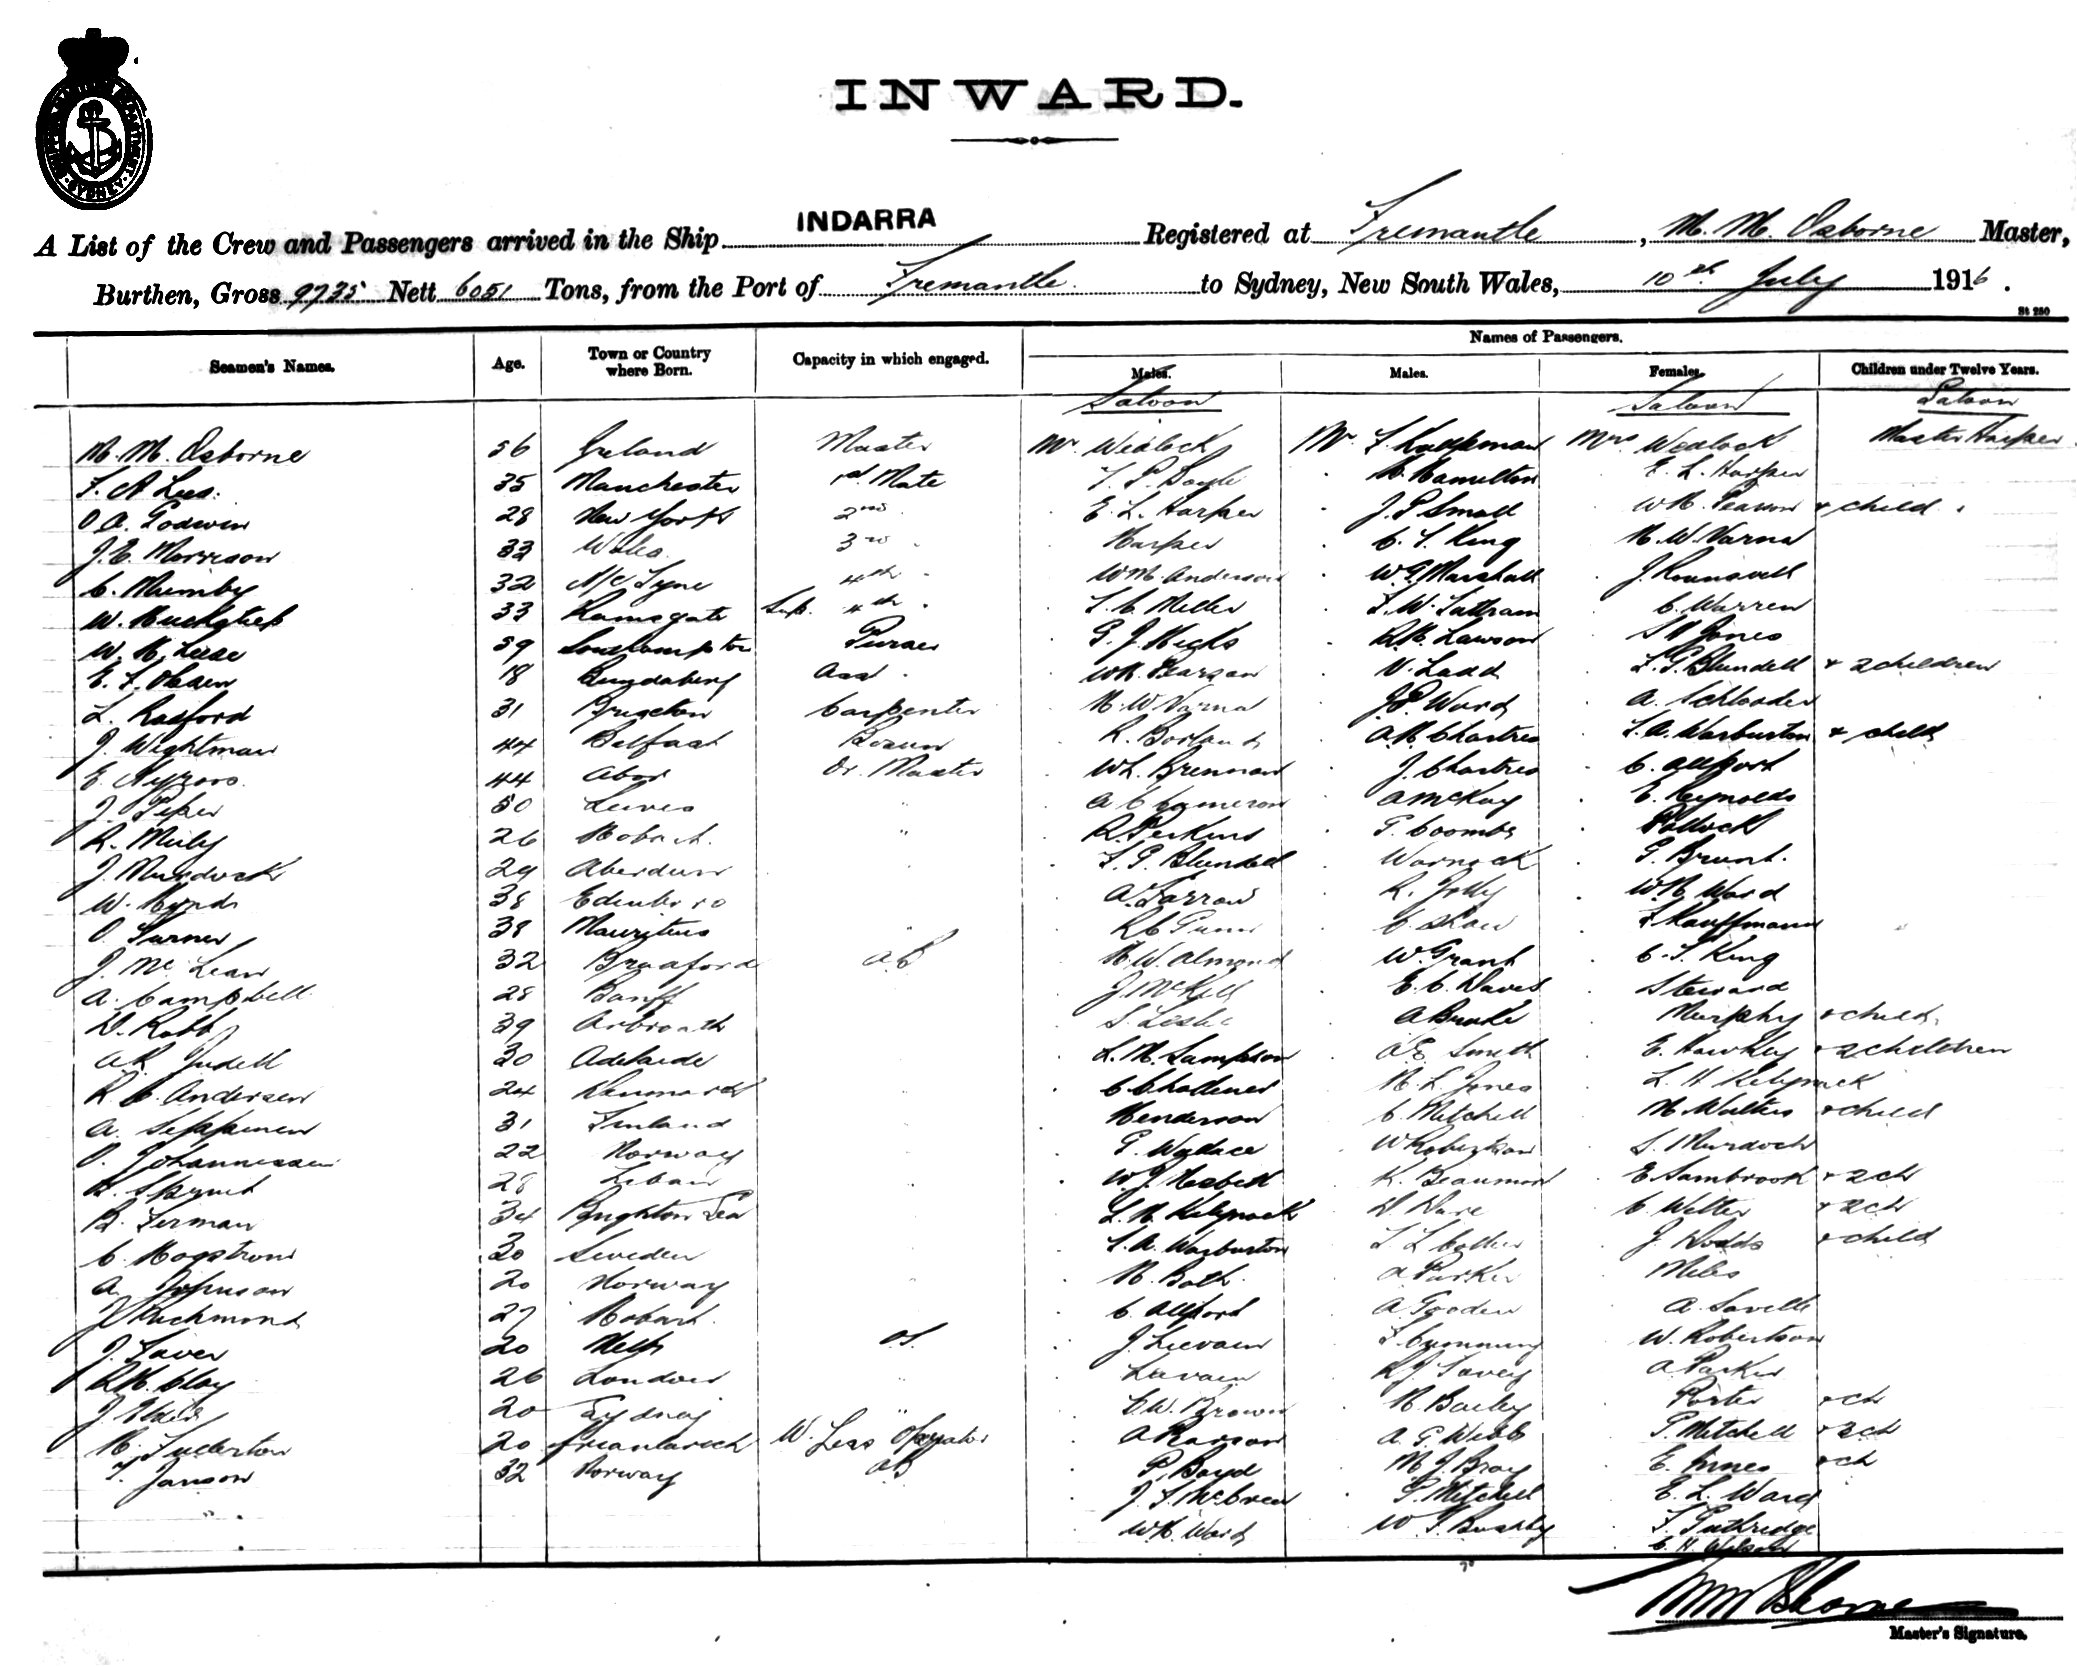 INWARD.
SYDNEY
A List of the Crew and Passengers arrived in the Ship INDARRA Registered at Fremantle, M. M. Osborne Master,
Burthen, Gross 9735 Nett 6051 Tons, from the Port of Fremantle. to Sydney, New South Wales, 10th July 1916.
St 250
Names of Passengers.
Seamen's Names. Age. Town or Country where Born. Capacity in which engaged. Males. Males. Females. Children under Twelve Years.
Saloon Saloon Saloon
M. M. Osborne 56 Ireland Master Mr Wedlock Mr F. Kauffman Mrs Wedlock Master Harper
F. A. Lees. 35 Manchester 1st Mate T. P. Doyle Hamilton E. L. Harper
O A. Godwin 28 New York 2nd E. L. Harper J. P Small W H. Pearson & child
J. E. Morrison 33 Wales 3rd Harper C. S. King H. W. Varna
C. Mumby 32 N/C Tyne 4th W M Anderson W G Marshall J Rounsevell
W. 33 Ramsgate Sup. 4th F. C Miller F. W. Latham C. Warren
W. H. Leese 39 Southampton Purser G. J. Hicks R H. Lawson S V Jones
E. F. Olsen 18 Bundaberg Asst. W H. Pearson V. Ladd F. G. Blundell & 2 children
L. Radford 31 Carpenter H. W Varna J P. Ward A. Schlooder
J. Wightman 44 Belfast Bosun R. Borland A H Chartres F. A. Warburton & child
E. 44 Abo Qr. Master W L. Brennan J. Chartres C. Allport
J. 50 A C Cameron A McKay E. Reynolds
R. 26 Hobart. R. Perkins G. Coombs Pollock
J. Murdock 29 Aberdeen F. G. Blundell Warnock G. Brunt.
W. 38 Edinboro A. Farrow R. Jolly W H Ward
O. Turner 38 Mauritius R C Gunn C. Shaw F Kauffmann
J. McLean 32 Bradford AB H. W. Almond W. Grant C. S. King
A. Campbell 28 Banff J. McKell E. C. Davis Steward
D. Robb 39 Arbroath S. Leslie A Brooke Murphy & child
A R Judell 30 Adelaide L. M. Sampson A E Smith E. Hawkey & 2 children
R C. Andersen 24 Denmark H. L. Jones L. H Kelynack
A. Seppanen 31 Finland Henderson C Mitchell H Walters & child
O. Johannessen 22 Norway G. Wallace W Robertson S. Murdoch
28 Libau W. J. Nesbitt K. Beaumont E Sambrook & 2 ch
B. Ferman 34 Brighton Eng L. H. Kelynack D Dare C Walter & 2 ch
C. Hogstrom 30 Sweden F. A. Warburton F L Collier J Dodds & child
A. Johnson 20 Norway H. Both. A Parker Miles
J Richmond 27 Hobart. C. Allport A Gooden A. Savelle
J. Laver 20 Melb OS. J. Lievain F. Cumming W. Robertson
R H. Clay 26 London Lievain R J Tovey A. Parker
J. 20 Sydney C. W. Brown H Bailey Porter & ch
H. Fullerton 20 W. Less Operator A Ransom A. G. Webb G. Mitchell & 2 ch
T. Janson 32 Norway AB P. Boyd M J Bray E. Innes & ch
J. F McCrea G. Mitchell E. L. Ward
W H. Ward W. F. Bushby F. Guthridge
C. H Wilson
M M Osborne
Master's Signature.